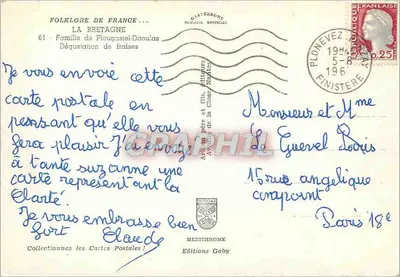 FOLKLORE DE FRANCE...
LA BRETAGNE
61 - Famille de Plougastel-Daoulas
Dégustation de fraises
Je vous envoie cette
carte postale en
pensant qu'elle vous
fera plaisir J'ai envoyé
à tante suzanne une
carte représentant la
Clarté.
Je vous embrasse bien
fort Claude
Collectionnez les Cartes Postales !
MEXICHROME
Editions Gaby
PLONEVEZ
19H45
5-8
196
FINISTERE
FRANÇAISE
0,25F
Monsieur et Mme
Le Guevel Louis
15 rue angélique
compoint
Paris 18e
CPAPHIL